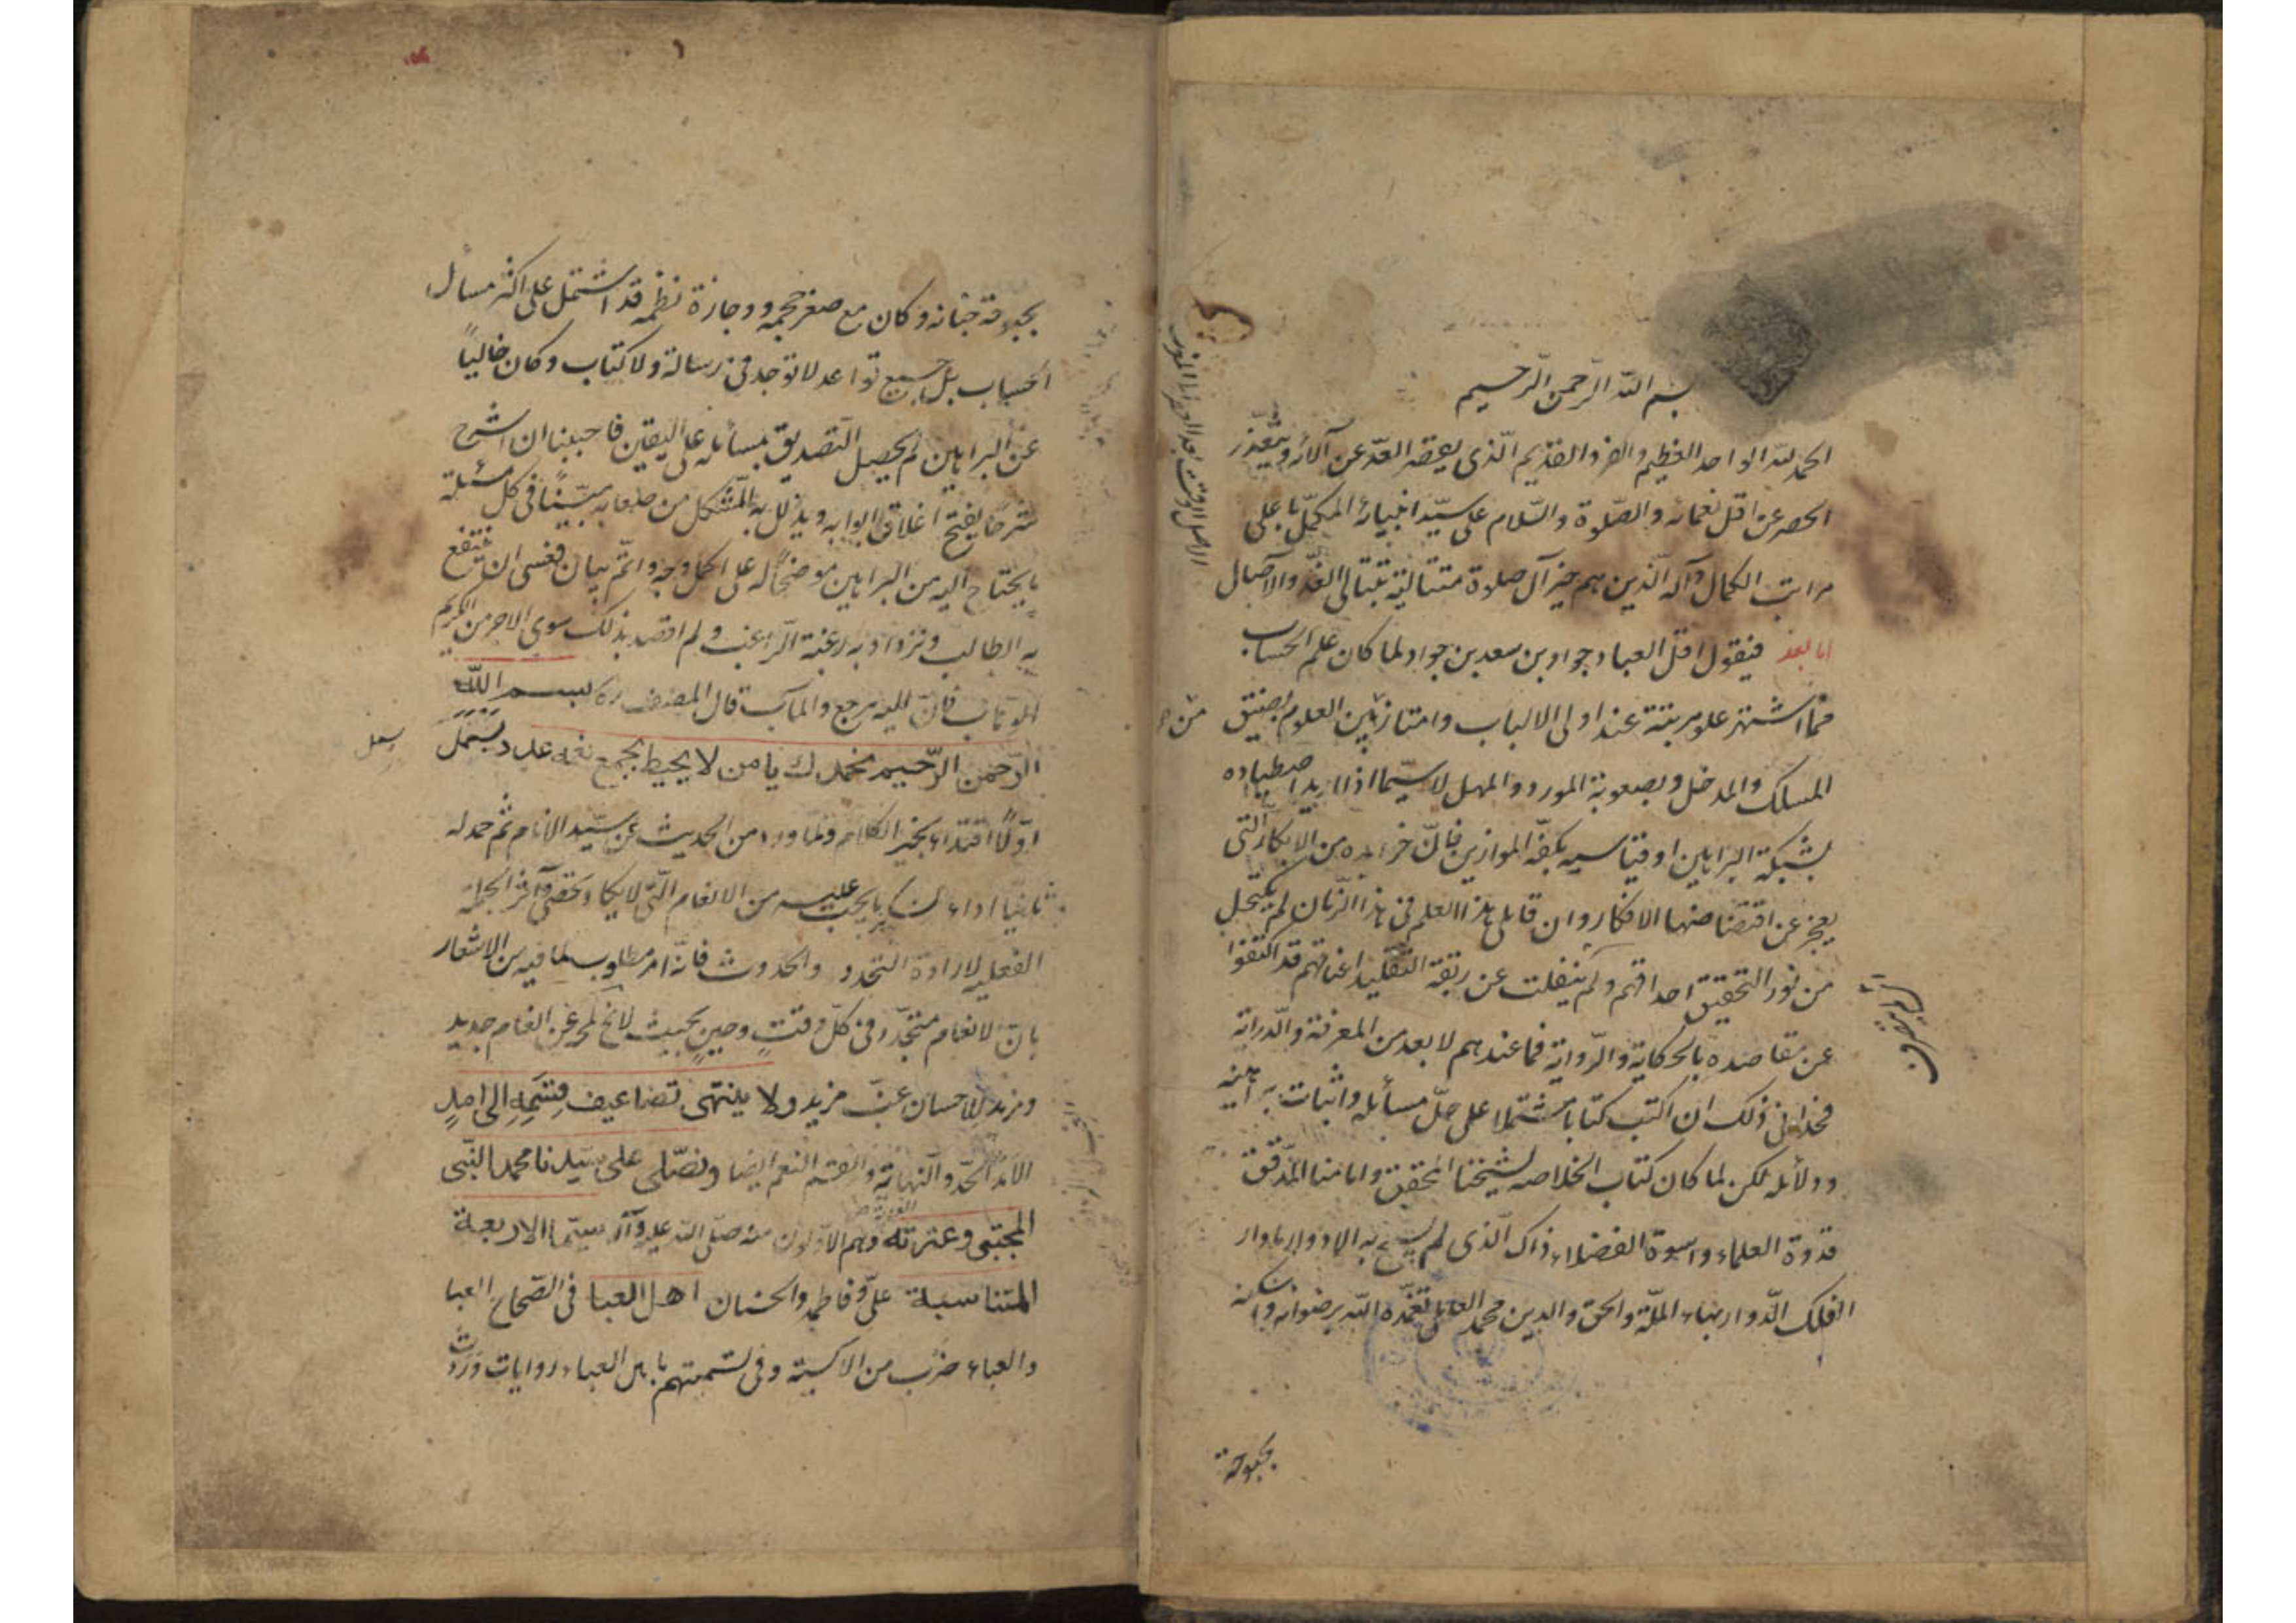 بسم الله الرّحمن الرّحيم
الحمد لله الواحد العظيم والفرد القديم الّذى يقصر العدّ عن آلائه ويتعذّر
الحصر عن اقل نعمائه والصّلوة والسّلام على سيّد انبيائه المكمّل باعلى
مراتب الكمال وآله الّذين هم خير آل صلوة متتالية بتتالى الغدّو والآصال
اما بعد فيقول اقل العباد جواد بن سعد بن جواد لما كان علم الحساب
مما اشتهر علو مرتبته عند اولى الالباب وامتاز من بين العلوم بضيق
المسلك والمدخل وبصعوبة المورد والمهل لا سيّما اذا اريد اصطياده
بشبكة البراهين او قياسيه بكفّة الموازين فانّ خرايده من الابكار الّتى
يعجز عن اقتضاضها الافكار وان قابلى هذا العلم فى هذا الزّمان لم يكتحل
من نور التحقيق احداقهم ولم ينفلت عن ربقة التقليد اعناقهم قد اكتفوا
عن مقاصده بالحكاية والرّواية فما عندهم لا بعد من المعرفة والدّراية
فحدانى ذلك ان اكتب كتابا مشتملا على جلّ مسائله واثبات براهينه
ودلائله لكن لما كان كتاب الخلاصه لشيخنا المحقق وامامنا المدّقق
قدوة العلماء واسوة الفضلاء ذاك الّذى لم يسمح به الادوار مادار
الفلك الدّوار بهاء الملّة والحق والدين محمد العاملى تغمّده الله برضوانه واسكنه
بحبوحة
بحبوحة جنانه وكان مع صغر حجمه ووجازة نظمه قد اشتمل على اكثر مسائل
الحساب بل جميع قواعد لا توجد فى رسالة ولا كتاب وكان خالياً
عن البراهين لم يحصل التصديق بمسائله على اليقين فاحببنا ان اشرح
شرحًا يفتح اغلاق ابوابه ويذلل به المشكل من صعابه مبيّنًا فى كل مسئلة
ما يحتاج اليه من البراهين موضحًا له على اكمل وجه واتمّ بيان فعسى ان ينتفع
به الطالب وتزداد به رغبة الرّاغب ولم اقصد بذلك سوى الاجر من الكريم
الوهاب فانّ اليه المرجع والمآب قال المصنف ره بسم اللّه
الرّحمن الرّحيم نحمدك يا من لا يحيط بجميع نعمه عدد بسمل
اوّلًا اقتداء بخير الكلام ولما ورد من الحديث عن سيّد الانام ثم حمد له
ثانيًا اداء لشكر ما يجب عليه من الانعام الّتى لا يكاد يحصى وآثر الجملة
الفعليه لارادة التجدد والحدوث فانّه امر مطلوب لما فيه من الاشعار
بانّ الانعام متجدّد فى كلّ وقتٍ وحينٍ بحيث لا يخ لمحة عن انعام جديد
ومزيد للاحسان غبّ مزيد ولا ينتهى تضاعيف قسمه الى امدٍ
الامد الحدّ والنهاية والقسم النعم ايضا ونصّلى على سيدنا محمد النّبى
المجتبى وعترته وهم الاقربون منه صلى الله عليه وآله سيّما الاربعة
المتناسبة علىّ وفاطمة والحسنان اهل العبا فى الصّحاح العبا
والعباء ضرب من الاكسية وفى تسميتهم باهل العباء روايات وردت